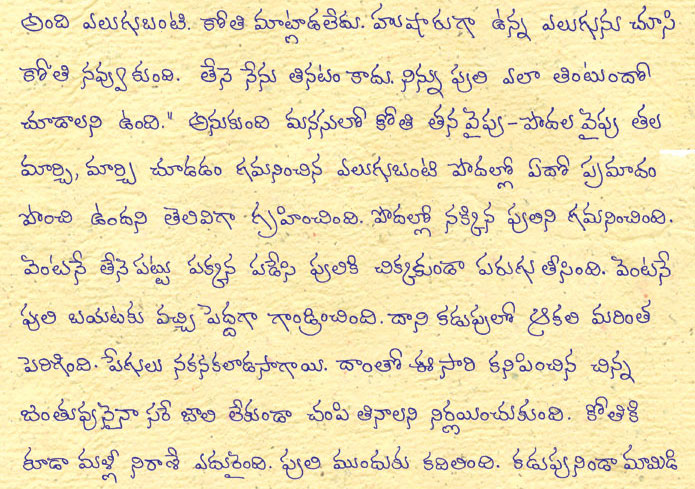 అంది ఎలుగుబంటి. కోతి మాట్లాడలేదు. హుషారుగా ఉన్న ఎలుగును చూసి
కోతి నవ్వుకుంది. తేనె నేను తినటం కాదు. నిన్ను పులి ఎలా తింటుందో
చూడాలని ఉంది." అనుకుంది మనసులో కోతి తన వైపు-పొదల వైపు తల
మార్చి, మార్చి చూడడం గమనించిన ఎలుగుబంటి పొదల్లో ఏదో ప్రమాదం
పొంచి ఉందని తెలివిగా గ్రహించింది. పొదల్లో నక్కిన పులిని గమనించింది.
వెంటనే తేనెపట్టు పక్కన పడేసి పులికి చిక్కకుండా పరుగు తీసింది. వెంటనే
పులి బయటకు వచ్చి పెద్దగా గాండ్రించింది. దాని కడుపులో ఆకలి మరింత
పెరిగింది. పేగులు నకనకలాడసాగాయి. దాంతో ఈసారి కనిపించిన చిన్న
జంతువునైనా సరే జాలి లేకుండా చంపి తినాలని నిర్ణయించుకుంది. కోతికి
కూడా మళ్లీ నిరాశే ఎదురైంది. పులి ముందుకు కదిలింది. కడుపునిండా మామిడి